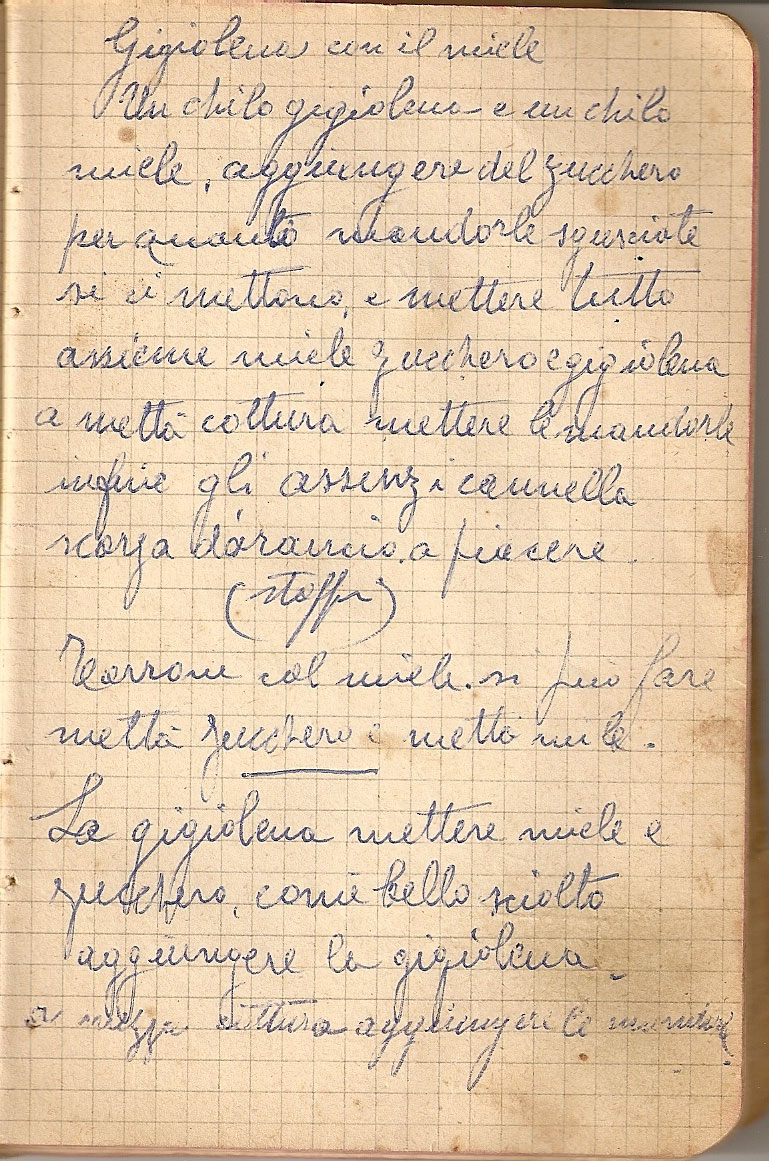 Gigiolena con il miele
Un chilo gigiolena e un chilo
miele, aggiungere del zucchero
per quanto mandorle sgusciate
si ci mettono, e mettere tutto
assieme miele zucchero e gigiolena
a mettà cottura mettere le mandorle
infine gli assenzi cannella
scorza d'arancio. a piacere.
Torrone col miele. si può fare
mettà zucchero e mettà miele.
La gigiolena mettere miele e
zucchero, com'è bello sciolto
aggiungere la gigiolena.
a mezza cottura aggiungere le mandorle.